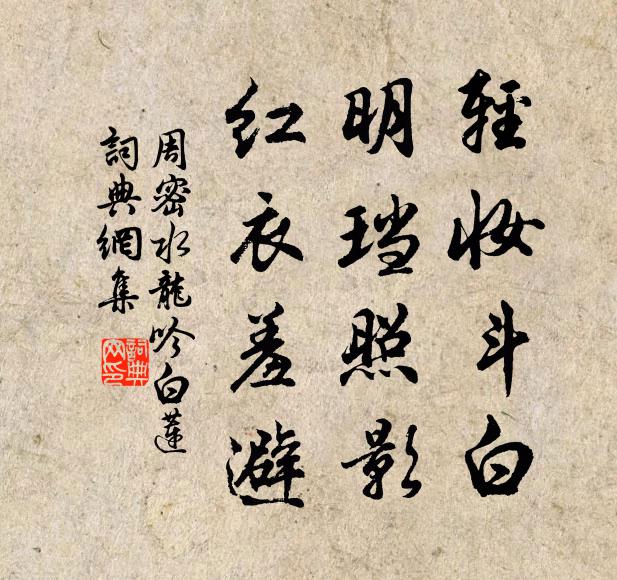 輕妆斗白
明珰照影
红衣羞避
周密水龍吟白蓮
詞典網集
詞典
网印